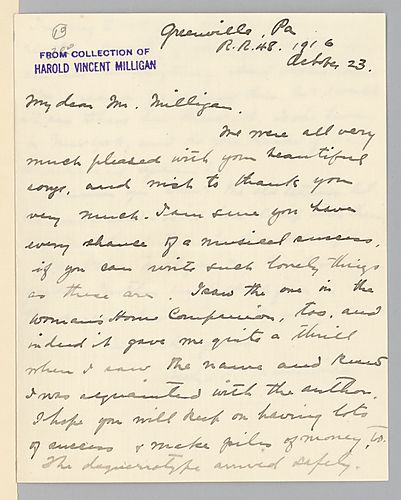 19
FROM COLLECTION OF
HAROLD VINCENT MILLIGAN
Greenville, Pa
R.R. 48. 1916
October 23.
My dear Mr. Milligan,
We were all very
much pleased with your beautiful
songs, and wish to thank you
very much. I am sure you have
every chance of a musical success,
if you can write such lovely things
as these are. I saw the one in the
Woman's Home Companion, too, and
indeed it gave me quite a thrill
when I saw the name and knew
I was acquainted with the author.
I hope you will keep on having lots
of success & make piles of money, to.
The daguerrotype arrived safely.